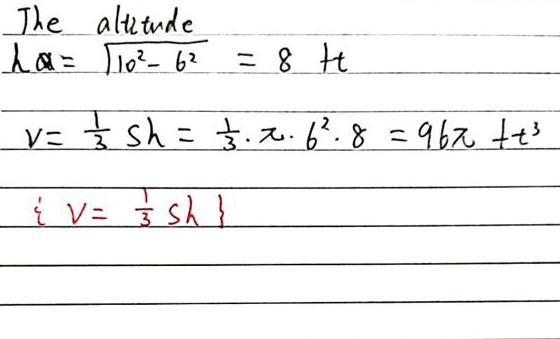 The altitude
h = √10² - 6² = 8 ft
V = 1/3 Sh = 1/3 · π · 6² · 8 = 96π ft³
{ V = 1/3 Sh }